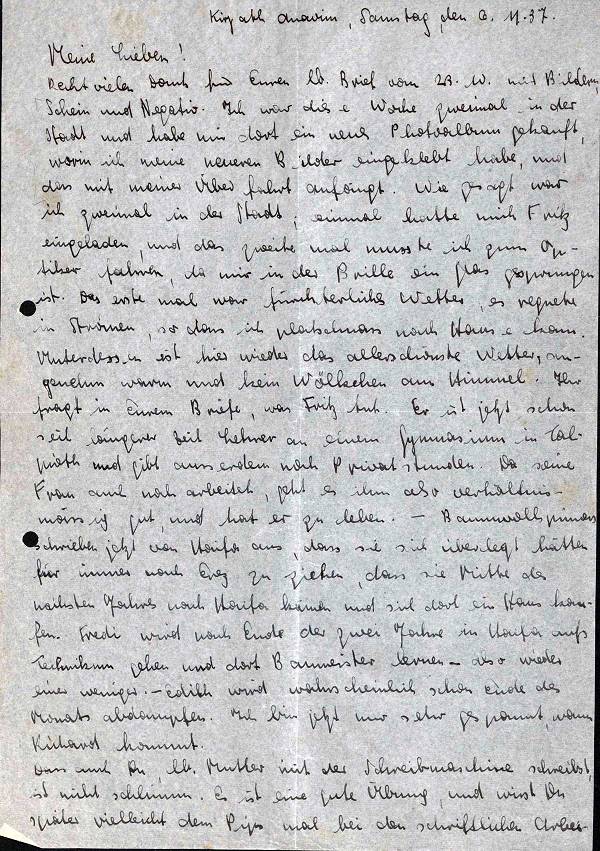 Kirjath Anavim, Samstag, den 6. 11. 37.
Meine Lieben!
Recht vielen Dank für Euren lb. Brief vom 28. 10. mit Bildern,
Schein und Negativ. Ich war diese Woche zweimal in der
Stadt und habe mir dort ein neues Photoalbum gekauft,
worin ich meine neueren Bilder eingeklebt habe, und
das mit meiner Überfahrt anfängt. Wie gesagt war
ich zweimal in der Stadt; einmal hatte mich Fritz
eingeladen, und das zweite mal musste ich zum Op-
tiker fahren, da mir in der Brille ein Glas gesprungen
ist. Das erste mal war fürchterliches Wetter, es regnete
in Strömen, so dass ich platschnass nach Hause kam.
Unterdessen ist hier wieder das allerschönste Wetter, an-
genehm warm und kein Wölkchen am Himmel. Ihr
fragt in Eurem Briefe, was Fritz tut. Er ist jetzt schon
seit längerer Zeit Lehrer an einem Gymnasium in Tal-
piath und gibt ausserdem noch Privatstunden. Da seine
Frau auch noch arbeitet, geht es ihm also verhältnis-
mässig gut, und hat er zu leben. – Baumwollspinners
schrieben jetzt von Haifa aus, dass sie sich überlegt hätten
für immer nach Erez zu ziehen, dass sie Mitte des
nächsten Jahres nach Haifa kämen und sich dort ein Haus kau-
fen. Fredi wird nach Ende der zwei Jahre in Haifa aufs
Technikum gehen und dort Baumeister lernen – also wieder
einer weniger. – Edith wird wahrscheinlich schon Ende des
Monats abdampfen. Ich bin jetzt nur sehr gespannt, wann
Richard kommt.
Dass auch Du, lb. Mutter mit der Schreibmaschine schreibst,
ist nicht schlimm. Es ist eine gute Übung, und wirst Du
später vielleicht dem Pips mal bei den schriftlichen Arbei-